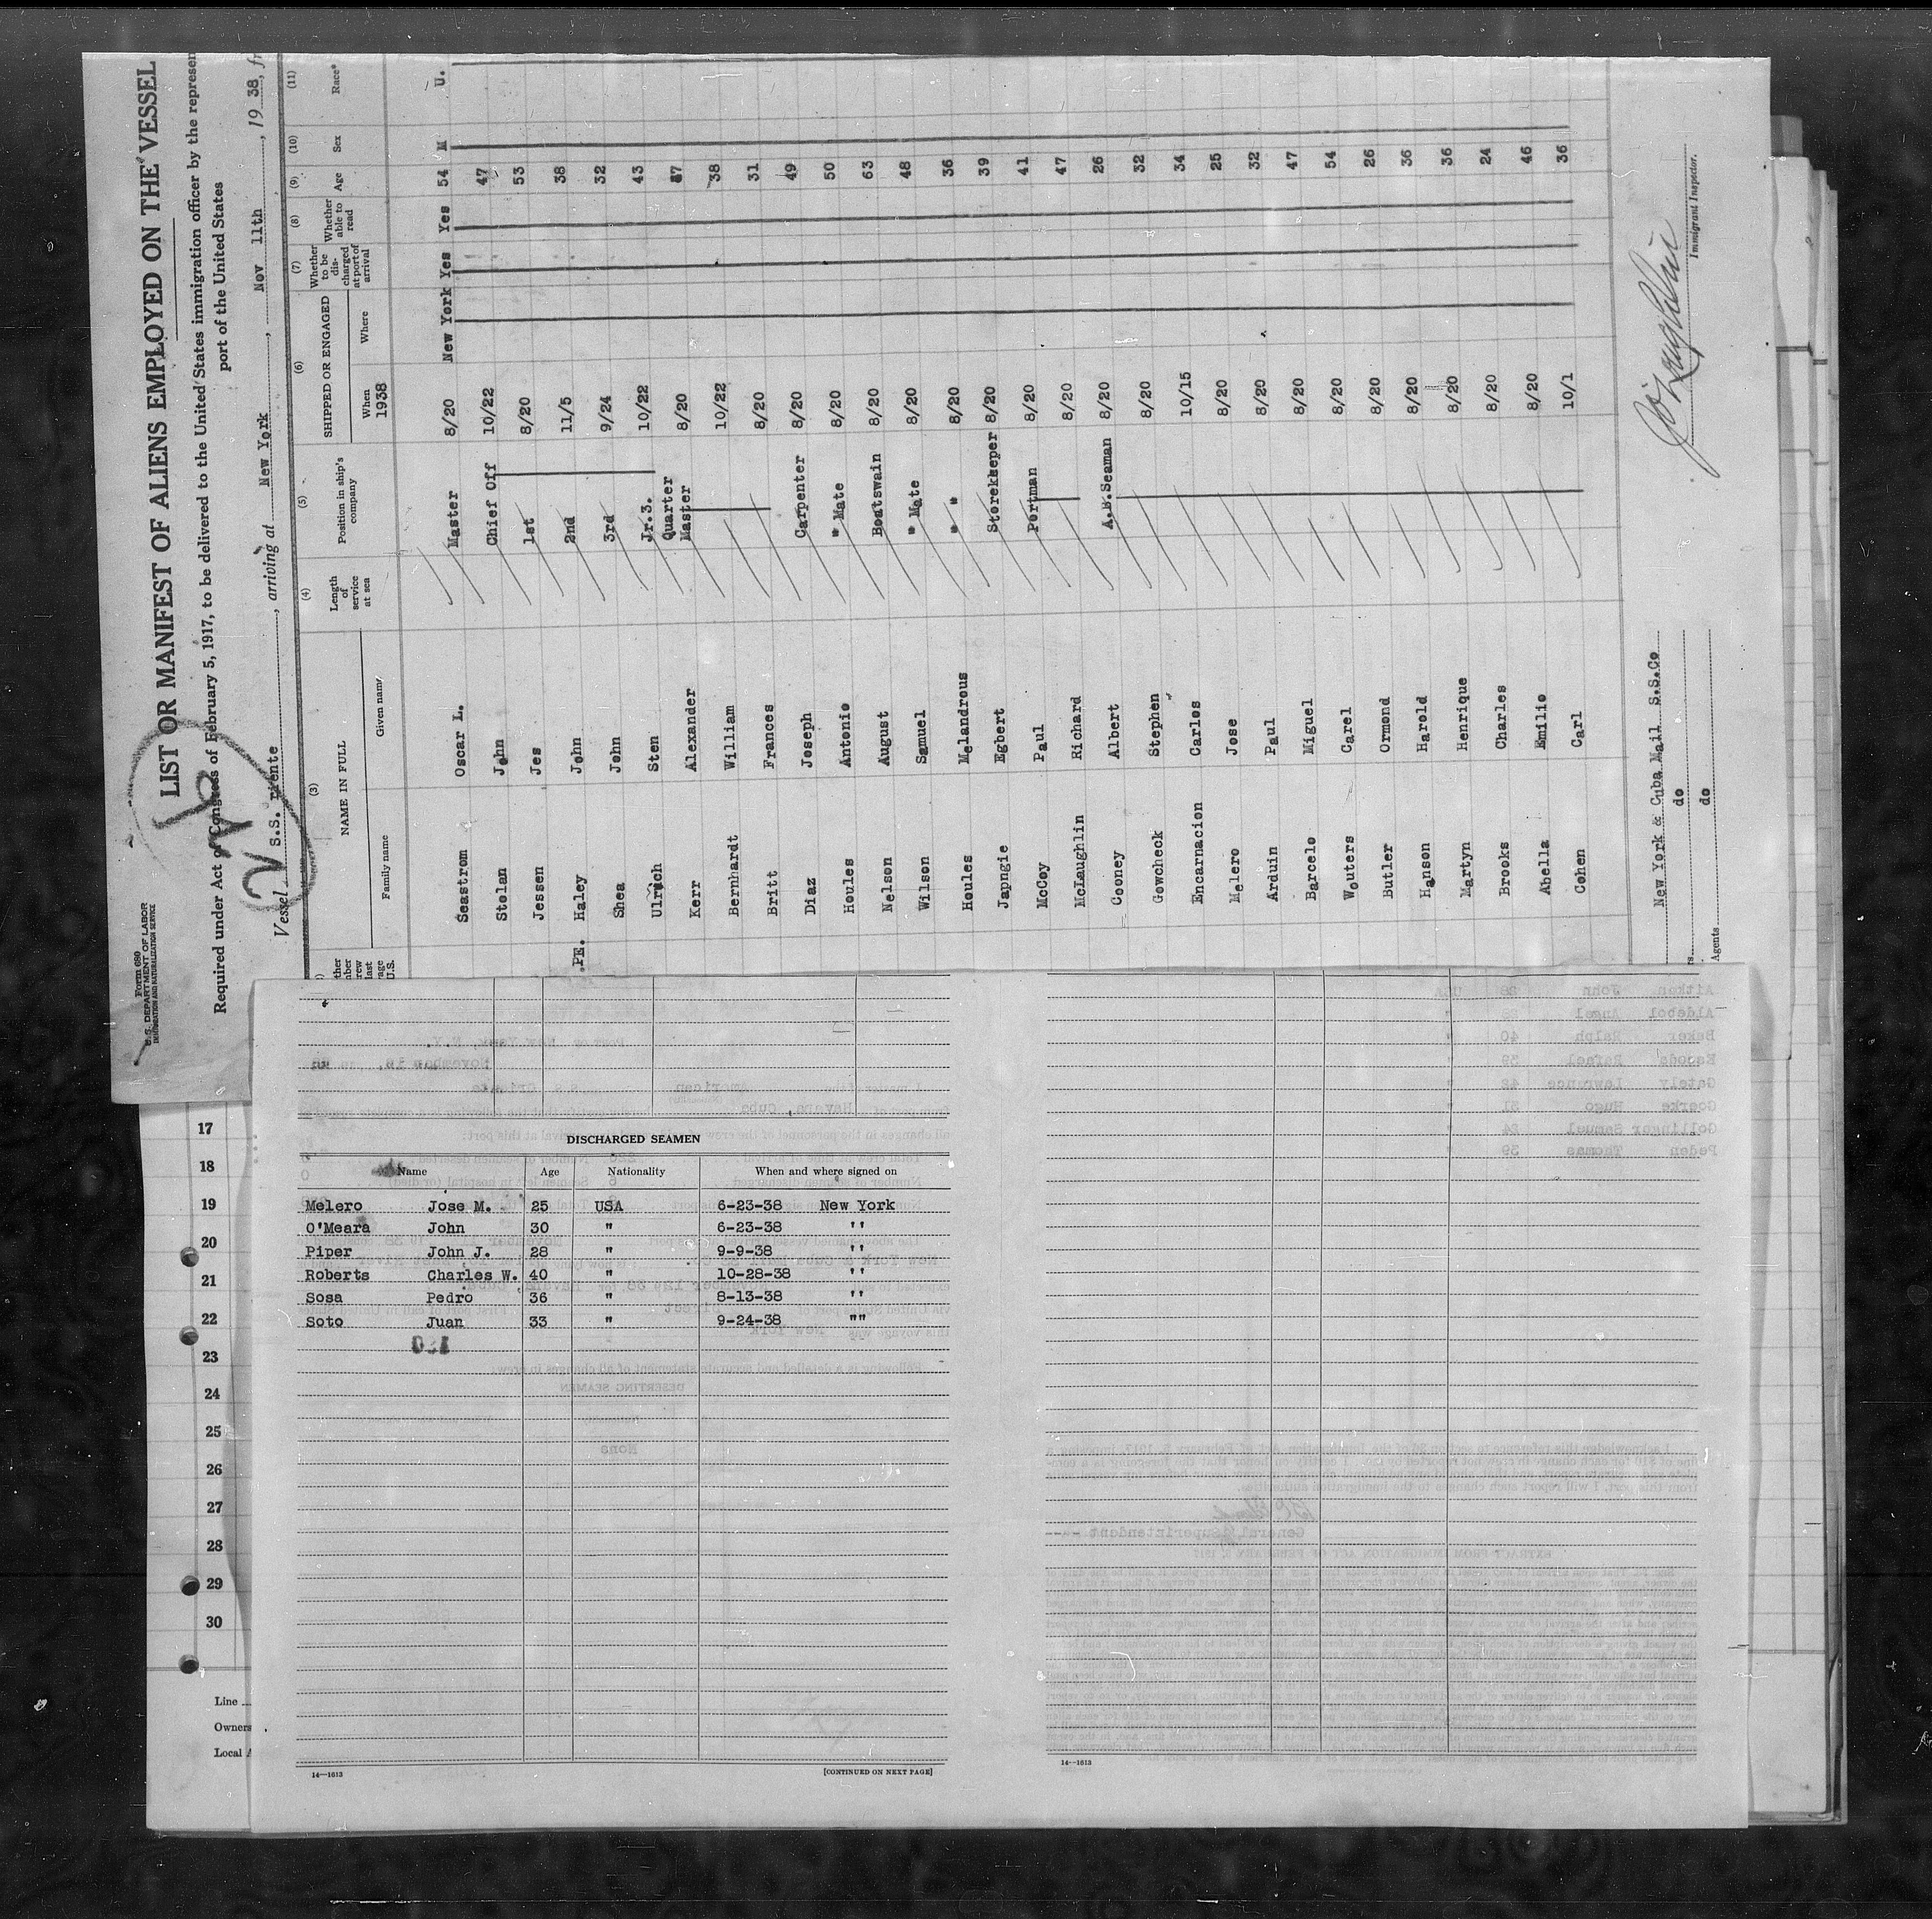 Form 680
U.S. DEPARTMENT OF LABOR
IMMIGRATION AND NATURALIZATION SERVICE
LIST OR MANIFEST OF ALIENS EMPLOYED ON THE VESSEL
Required under Act of Congress of February 5, 1917, to be delivered to the United States immigration officer by the represen
port of the United States
Vessel S.S. riente, arriving at New York, Nov 11th, 1938, fr
(3) (4) (5) (6) (7) (8) (9) (10) (11)
NAME IN FULL
Family name Given name
Length of service at sea
Position in ship's company
SHIPPED OR ENGAGED
When 1938 Where
Whether to be discharged at port of arrival
Whether able to read
Age
Sex
Race*
Seastrom Oscar L. Master 8/20 New York Yes Yes 54 M U.
Stolan John Chief Off 10/22 47
Jessen Jes 1st 8/20 53
.PE. Haley John 2nd 11/5 38
Shea John 3rd 9/24 32
Ulrich Sten Jr.3. 10/22 43
Kerr Alexander Quarter Master 8/20 37
Bernhardt William 10/22 38
Britt Frances 8/20 31
Diaz Joseph Carpenter 8/20 49
Houles Antonio " Mate 8/20 50
Nelson August Boatswain 8/20 63
Wilson Samuel " Mate 8/20 48
Houles Melandrous " " 8/20 36
Japngie Egbert Storekkeeper 8/20 39
McCoy Paul Portman 8/20 41
McLaughlin Richard 8/20 47
Cooney Albert A.B.Seaman 8/20 26
Gowcheck Stephen 8/20 32
Encarnacion Carlos 10/15 34
Melero Jose 8/20 25
Arduin Paul 8/20 32
Barcelo Miguel 8/20 47
Wouters Carel 8/20 54
Butler Ormond 8/20 26
Hanson Harold 8/20 36
Martyn Henrique 8/20 36
Brooks Charles 8/20 24
Abella Emilio 8/20 46
Cohen Carl 10/1 36
New York & Cuba Mail S.S.Co
do
Agents do
Immigrant Inspector.
17
18
19
20
21
22
23
24
25
26
27
28
29
30
Line
Owners
Local A
DISCHARGED SEAMEN
Name Age Nationality When and where signed on
Melero Jose M. 25 USA 6-23-38 New York
O'Meara John 30 " 6-23-38 ''
Piper John J. 28 " 9-9-38 ''
Roberts Charles W. 40 " 10-28-38 ''
Sosa Pedro 36 " 8-13-38 ''
Soto Juan 33 " 9-24-38 ""
14—1613 [CONTINUED ON NEXT PAGE]
14—1613